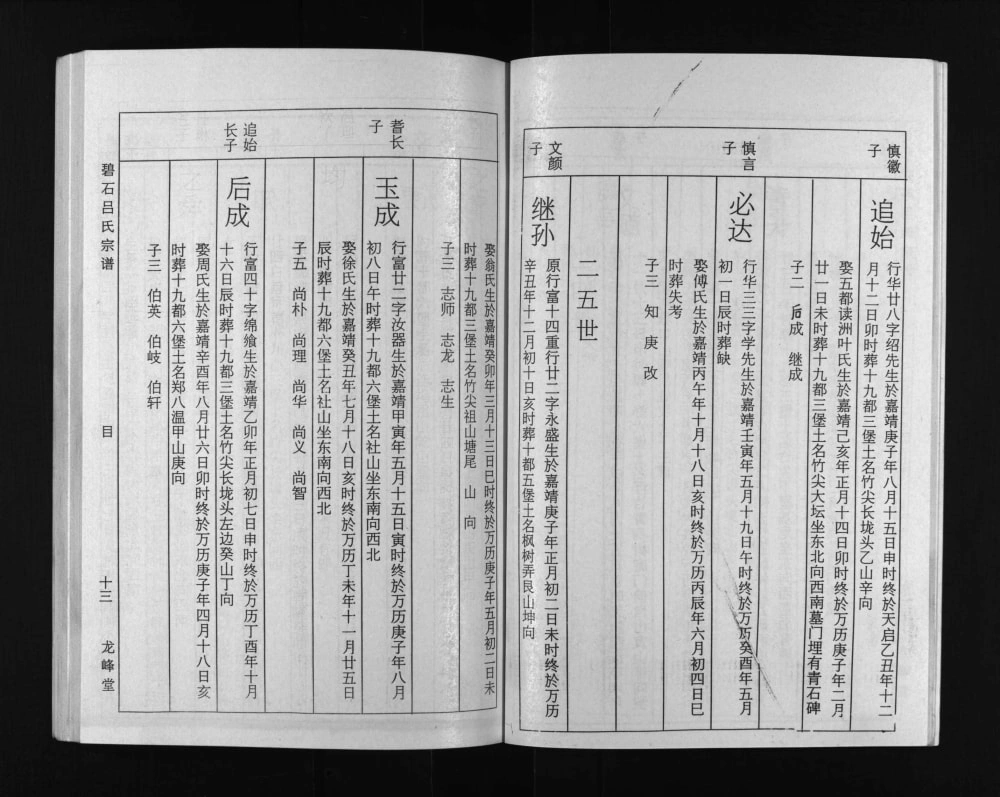 慎徽
子
追始
行华廿八字绍先生於嘉靖庚子年八月十五日申时终於天启乙丑年十二
月十二日卯时葬十九都三堡土名竹尖长垅头乙山辛向
娶五都读洲叶氏生於嘉靖己亥年正月十四日卯时终於万历庚子年二月
廿一日未时葬十九都三堡土名竹尖大坛坐东北向西南墓门埋有青石碑
子二 后成 继成
慎言
子
必达
行华三三字学先生於嘉靖壬寅年五月十九日午时终於万历癸酉年五月
初一日辰时葬缺
娶傅氏生於嘉靖丙午年十月十八日亥时终於万历丙辰年六月初四日巳
时葬失考
子三 知 庚 改
二五世
文颜
子
继孙
原行富十四重行廿二字永盛生於嘉靖庚子年正月初二日未时终於万历
辛丑年十二月初十日亥时葬十都五堡土名枫树弄艮山坤向
娶翁氏生於嘉靖癸卯年三月十三日巳时终於万历庚子年五月初二日未
时葬十九都三堡土名竹尖祖山塘尾 山 向
子三 志师 志龙 志生
耆长
子
玉成
行富廿二字汝器生於嘉靖甲寅年五月十五日寅时终於万历庚子年八月
初八日午时葬十九都六堡土名社山坐东南向西北
娶徐氏生於嘉靖癸丑年七月十八日亥时终於万历丁未年十一月廿五日
辰时葬十九都六堡土名社山坐东南向西北
子五 尚朴 尚理 尚华 尚义 尚智
追始
长子
后成
行富四十字绵飨生於嘉靖乙卯年正月初七日申时终於万历丁酉年十月
十六日辰时葬十九都三堡土名竹尖长垅头左边癸山丁向
娶周氏生於嘉靖辛酉年八月廿六日卯时终於万历庚子年四月十八日亥
时葬十九都六堡土名郑八温甲山庚向
子三 伯英 伯岐 伯轩
碧石吕氏宗谱 目 十三 龙峰堂